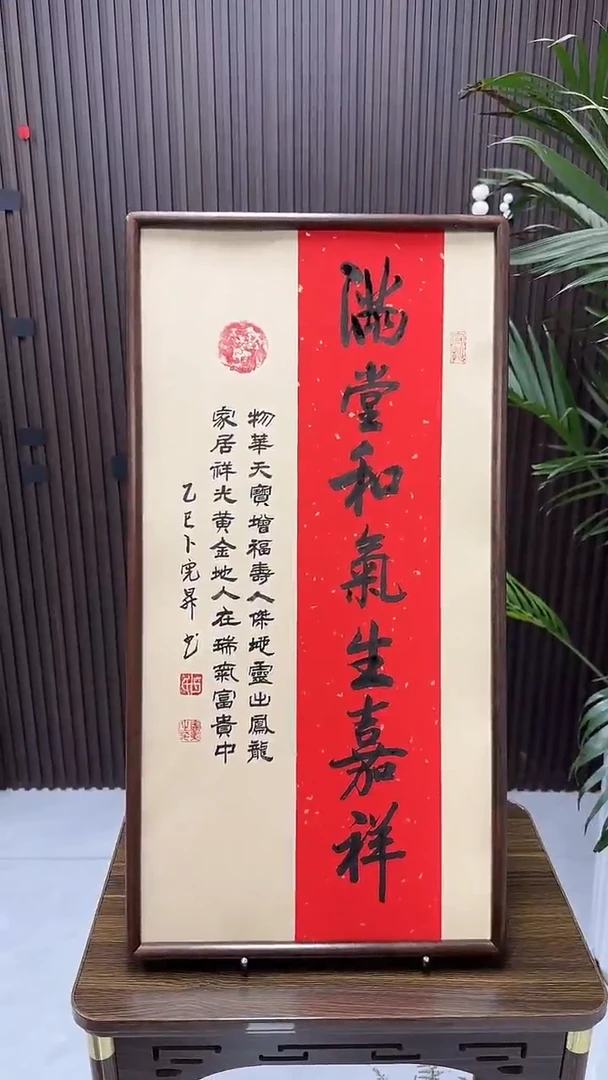 滿堂和氣生嘉祥
物華天寶增福壽人傑地靈出鳳龍
家居祥光黃金地人在瑞氣富貴中
乙巳卜完昇书